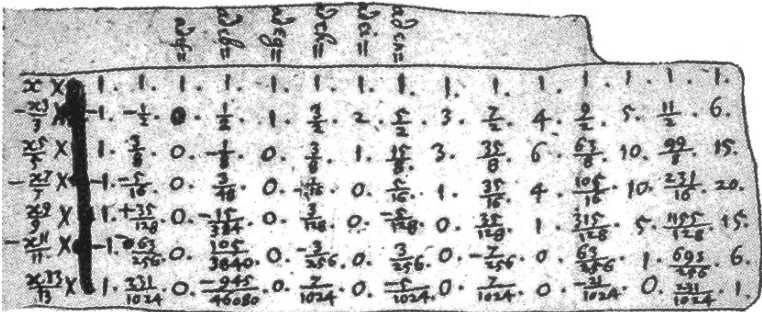 x × 1. 1. 1. 1. 1. 1. 1. 1. 1. 1. 1. 1. 1. 1. 1.
-x3/3 × -1. -1/2. 0. 1/2. 1. 3/2. 2. 5/2. 3. 7/2. 4. 9/2. 5. 11/2. 6.
x5/5 × 1. 3/8. 0. -1/8. 0. 3/8. 1. 15/8. 3. 35/8. 6. 63/8. 10. 99/8. 15.
-x7/7 × -1. -5/16. 0. 3/48. 0. -1/16. 0. 5/16. 1. 35/16. 4. 105/16. 10. 231/16. 20.
x9/9 × 1. +35/128. 0. -15/384. 0. 3/128. 0. -5/128. 0. 35/128. 1. 315/128. 5. 1155/128. 15.
-x11/11 × -1. -63/256. 0. 105/3840. 0. -3/256. 0. 3/256. 0. -7/256. 0. 63/256. 1. 693/256. 6.
x13/13 × 1. 231/1024. 0. -945/46080. 0. 7/1024. 0. -5/1024. 0. 7/1024. 0. -21/1024. 0. 231/1024. 1.